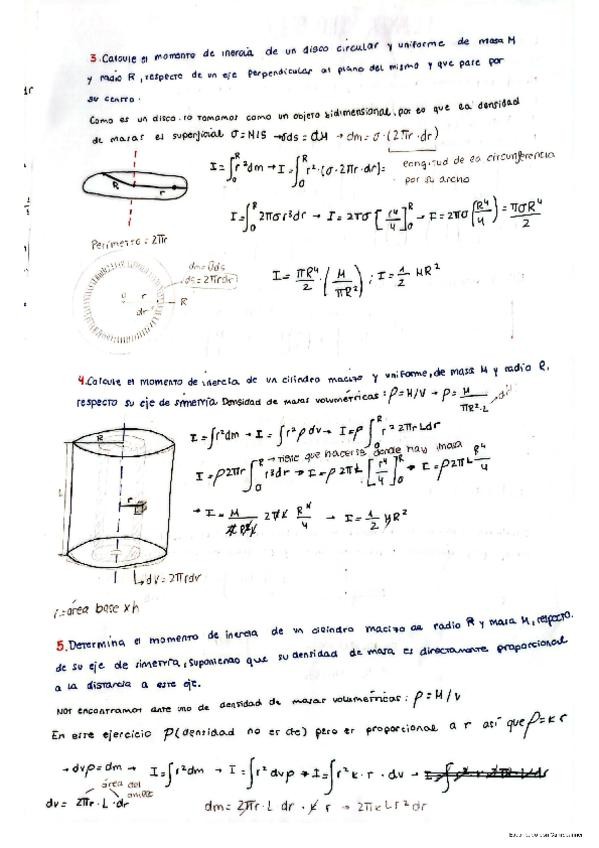 3. Calcule el momento de inercia de un disco circular y uniforme de masa M
y radio R, respecto de un eje perpendicular al plano del mismo y que pase por
su centro.
Como es un disco lo tomamos como un objeto bidimensional, por lo que la densidad
de masas es superficial σ = M/S → σds = dM → dm = σ · (2πr · dr)
I = ∫₀ᴿ r² dm → I = ∫₀ᴿ r² · (σ · 2πr · dr) =
longitud de la circunferencia
por su ancho
R r
I = ∫₀ᴿ 2πσr³dr → I = 2πσ [r⁴/4]₀ᴿ → I = 2πσ (R⁴/4) = πσR⁴/2
Perímetro = 2πr
dm = σds
ds = 2πrdr
r R
dr
I = πR⁴/2 · (M/πR²) ; I = 1/2 MR²
4. Calcule el momento de inercia de un cilindro macizo y uniforme, de masa M y radio R,
respecto su eje de simetría. Densidad de masas volumétricas: ρ = M/V → ρ = M/πR²·L
R
I = ∫r²dm → I = ∫r²ρdv → I = ρ∫₀ᴿ r² 2πrLdr
→ tiene que hacerse donde hay masa
I = ρ2πr ∫₀ᴿ r³dr → I = ρ2πL [r⁴/4]₀ᴿ → I = ρ2πL R⁴/4
L r
→ I = M/πR²L 2πL R⁴/4 → I = 1/2 MR²
↳ dv = 2πrdr
área base x h
5. Determina el momento de inercia de un cilindro macizo de radio R y masa M, respecto
de su eje de simetría, suponiendo que su densidad de masa es directamente proporcional
a la distancia a este eje.
Nos encontramos ante uno de densidad de masas volumétricas: ρ = M/V
En este ejercicio ρ (densidad no es cte) pero es proporcional a r así que ρ = k r
→ dvρ = dm → I = ∫r²dm → I = ∫r²dvρ → I = ∫r²k · r · dv →
área del
anillo
dv = 2πr · L · dr
dm = 2πr · L dr · k r → 2πkLr²dr